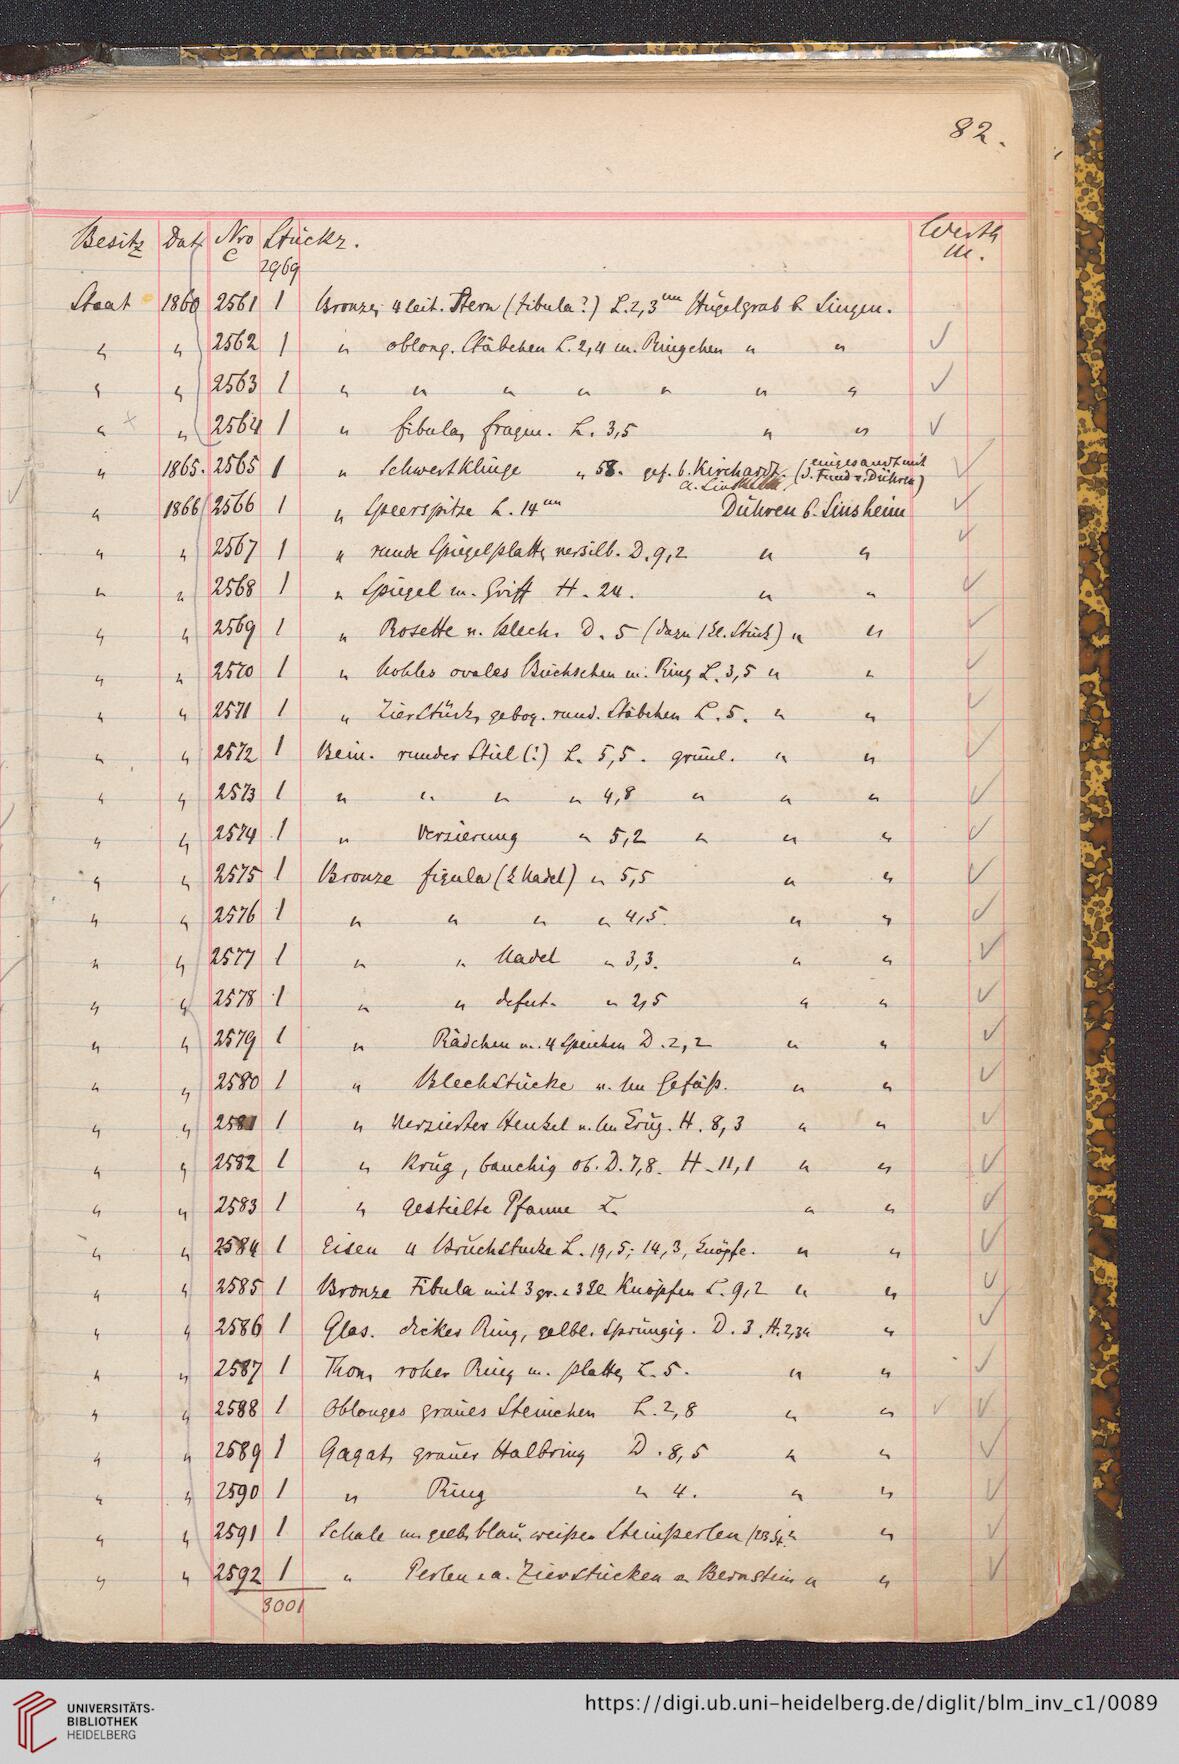 82.
Besitz Dat. Nro Stückz. Werth
C 2969 M.
Staat 1860 2561 1 Bronze, 4 teil. Stern (Fibula?) L. 2,3 cm Hügelgrab b. Singen.
" " 2562 1 " oblong. Stäbchen L. 2,4 m. Ringchen " " ✓
" " 2563 1 " " " " " " " ✓
" " 2564 1 " Fibula, fragm. L. 3,5 " " ✓
" 1865. 2565 1 " Schwertklinge " 58. gef. b. Kirchardt. (eingesandt mit
d. Fund v. Dühren) ✓
" 1866 2566 1 " Speerspitze L. 14 cm Dühren b. Sinsheim ✓
" " 2567 1 " runde Spiegelplatte, versilb. D. 9,2 " " ✓
" " 2568 1 " Spiegel m. Griff H. 24. " " ✓
" " 2569 1 " Rosette v. Blech. D. 5 (dazu 1 kl. Stück) " " ✓
" " 2570 1 " hohles ovales Büchschen m. Ring L. 3,5 " " ✓
" " 2571 1 " Zierstück, gebog. rund. Stäbchen L. 5. " " ✓
" " 2572 1 Bein. runder Stiel (?) L. 5,5. grünl. " " ✓
" " 2573 1 " " " " 4,8 " " " ✓
" " 2574 1 " Verzierung " 5,2 " " " ✓
" " 2575 1 Bronze Figula (½ Nadel) " 5,5 " " ✓
" " 2576 1 " " " " 4,5. " " ✓
" " 2577 1 " " Nadel " 3,3. " " ✓
" " 2578 1 " " defect. " 2,5 " " ✓
" " 2579 1 " Rädchen m. 4 Speichen D. 2,2 " " ✓
" " 2580 1 " Blechstücke Gefäß. " " ✓
" " 2581 1 " verzierter Henkel Krug. H. 8,3 " " ✓
" " 2582 1 " Krug, bauchig ob. D. 7,8. H. 11,1 " " ✓
" " 2583 1 " gestielte Pfanne L. " " ✓
" " 2584 1 Eisen 4 Bruchstücke L. 19,5; 14,3, Knöpfe. " " ✓
" " 2585 1 Bronze Fibula mit 3 gr. u 3 kl. Knöpfen L. 9,2 " " ✓
" " 2586 1 Glas. dicker Ring, gelbl. sprüngig. D. 3. H. 2,3 " " ✓
" " 2587 1 Thon, roher Ring m. Platte, L. 5. " " ✓
" " 2588 1 Oblonges graues Steinchen L. 2,8 " " ✓ ✓
" " 2589 1 Gagat, grauer Halbring D. 8,5 " " ✓
" " 2590 1 " Ring " 4. " " ✓
" " 2591 1 Schale m. gelb. blau. weißen Steinperlen (23 St. " " ✓
" " 2592 1 " Perlen u. a. Zierstücken a. Bernstein " " ✓
3001
UNIVERSITÄTS-
BIBLIOTHEK
HEIDELBERG
https://digi.ub.uni-heidelberg.de/diglit/blm_inv_c1/0089